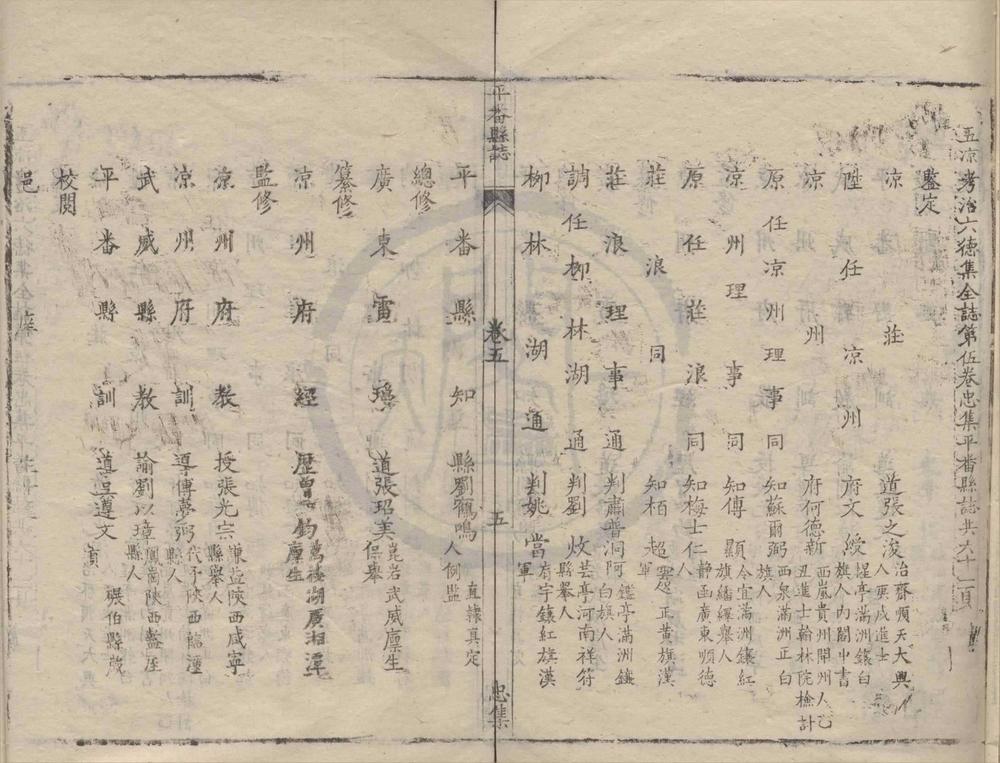 五涼考治六德集全誌第伍卷忠集平番縣誌共九十二頁
鑒定
涼莊道張之浚治齋順天大興人
陞任涼州府文綬 滿洲鑲白旗人內閣中書
涼州府何德新西嵐貴州開州人乙丑進士翰林院檢討
原任涼州理事同知蘇爾弼西泉滿洲正白旗人
涼州理事同知傳顯令宜滿洲鑲紅旗繙繹舉人
原任莊浪同知梅士仁靜函廣東順德人
莊浪同知栢超 正黃旗漢軍
莊浪理事通判肅普洞阿 滿洲鑲白旗人
調任柳林湖通判劉炆芸亭河南祥符縣舉人
柳林湖通判姚當 鑲紅旗漢軍
平番縣誌
卷五
五
忠集
平番縣知縣劉觀鳴直隸真定人例監
總修
廣東雷瓊道張玿美崑岩武威廩生保舉
纂修
涼州府經歷曾鈞萬 湖廣湘潭廩生
監修
涼州府教授張光宗 陝西咸寧縣舉人
涼州府訓導傅夢弼代予陝西臨潼縣人
武威縣教諭劉以璋鳳崗陝西盩厔縣人
平番縣訓導呂遵文碾伯縣歲貢
校閱
邑庠